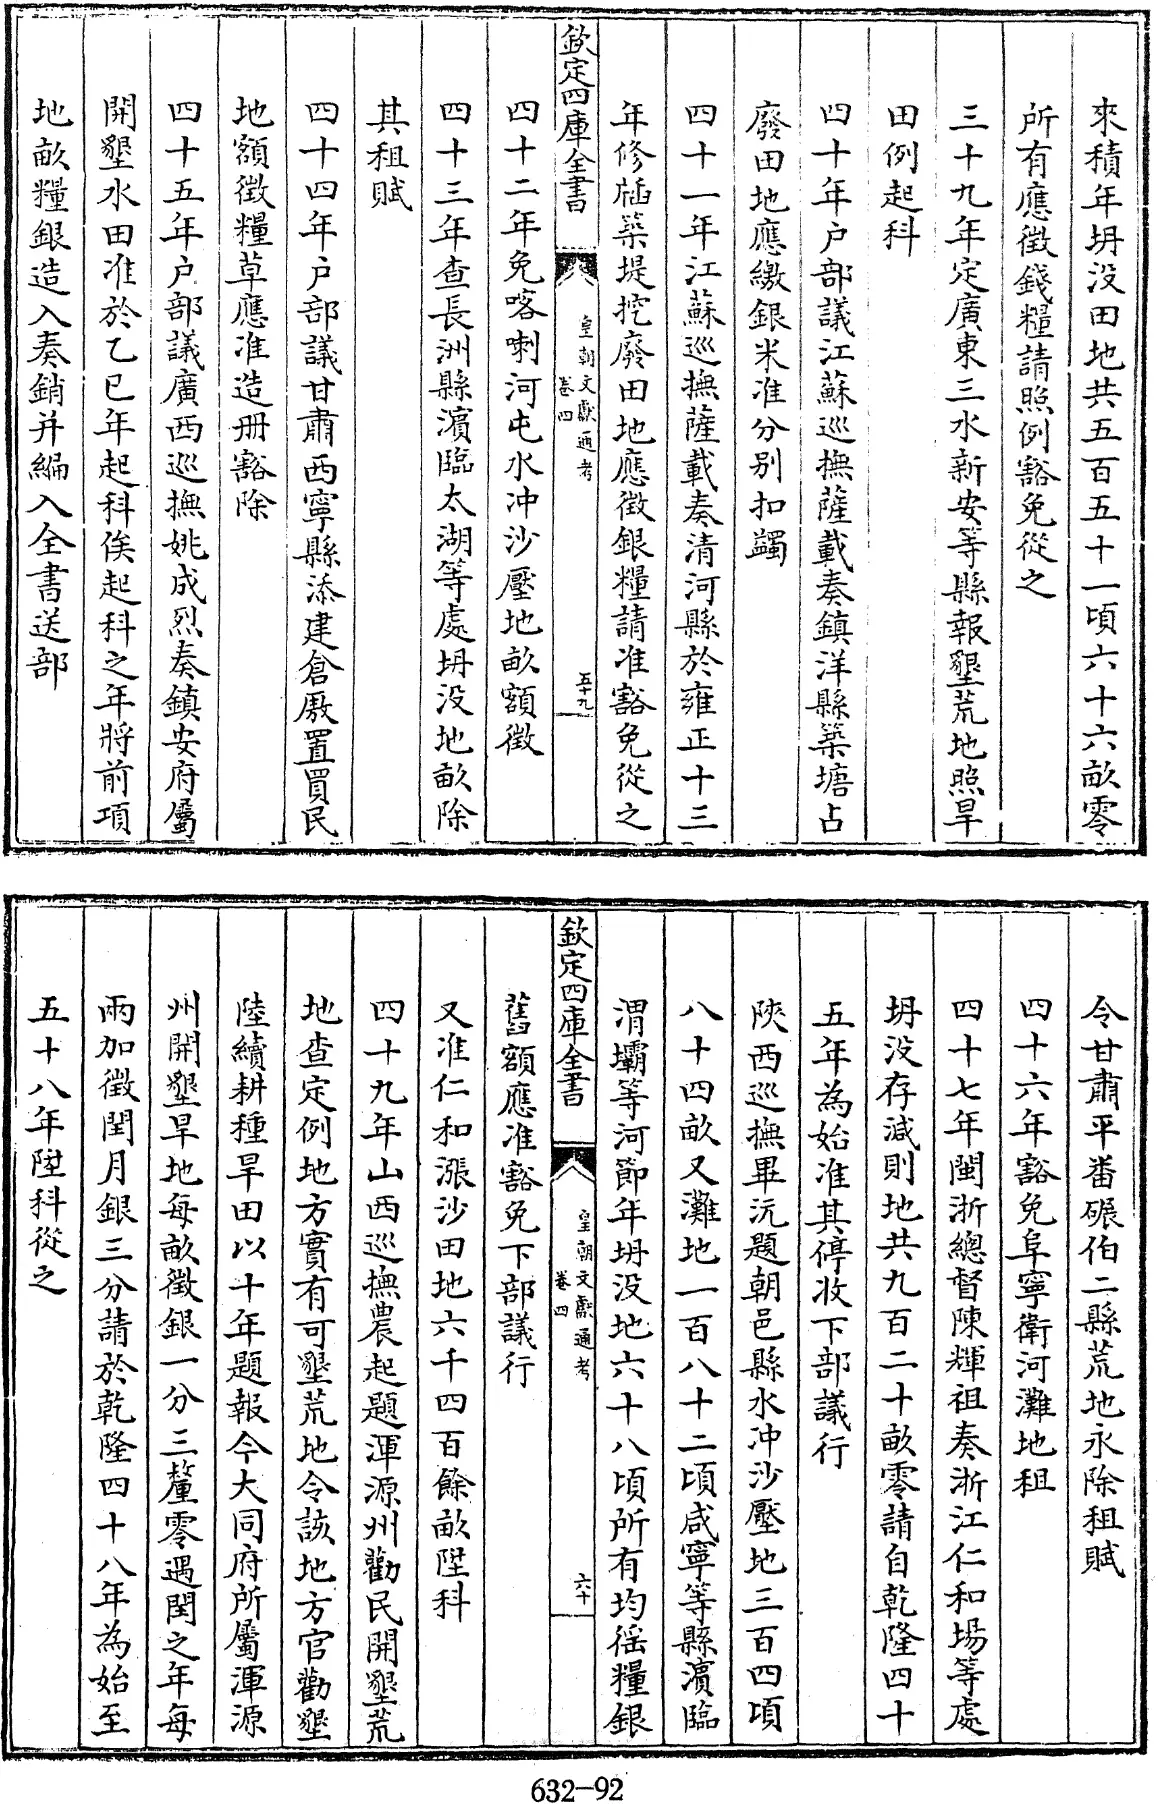 來積年坍没田地共五百五十一頃六十六畝零
所有應徵錢糧請照例豁免從之
三十九年定廣東三水新安等縣報墾荒地照旱
田例起科
四十年户部議江蘇巡撫薩載奏鎮洋縣築塘占
廢田地應繳銀米准分别扣蠲
四十一年江蘇巡撫薩載奏清河縣於雍正十三
年修牐築堤挖廢田地應徵銀糧請准豁免從之
欽定四庫全書
皇朝文獻通考
卷四
五十九
四十二年免喀喇河屯水冲沙壓地畝額徵
四十三年查長洲縣濱臨太湖等處坍没地畝除
其租賦
四十四年户部議甘肅西寧縣添建倉廒置買民
地額徵糧草應准造册豁除
四十五年户部議廣西巡撫姚成烈奏鎮安府屬
開墾水田准於乙巳年起科俟起科之年將前項
地畝糧銀造入奏銷并編入全書送部
令甘肅平番碾伯二縣荒地永除租賦
四十六年豁免阜寧衛河灘地租
四十七年閩浙總督陳輝祖奏浙江仁和場等處
坍没存減則地共九百二十畝零請自乾隆四十
五年為始准其停收下部議行
陜西巡撫畢沅題朝邑縣水冲沙壓地三百四頃
八十四畝又灘地一百八十二頃咸寧等縣濱臨
渭壩等河節年坍没地六十八頃所有均徭糧銀
欽定四庫全書
皇朝文獻通考
卷四
六十
舊額應准豁免下部議行
又准仁和漲沙田地六千四百餘畝陞科
四十九年山西巡撫農起題渾源州勸民開墾荒
地查定例地方實有可墾荒地令該地方官勸墾
陸續耕種旱田以十年題報今大同府所屬渾源
州開墾旱地每畝徵銀一分三釐零遇閏之年每
兩加徵閏月銀三分請於乾隆四十八年為始至
五十八年陞科從之
632-92